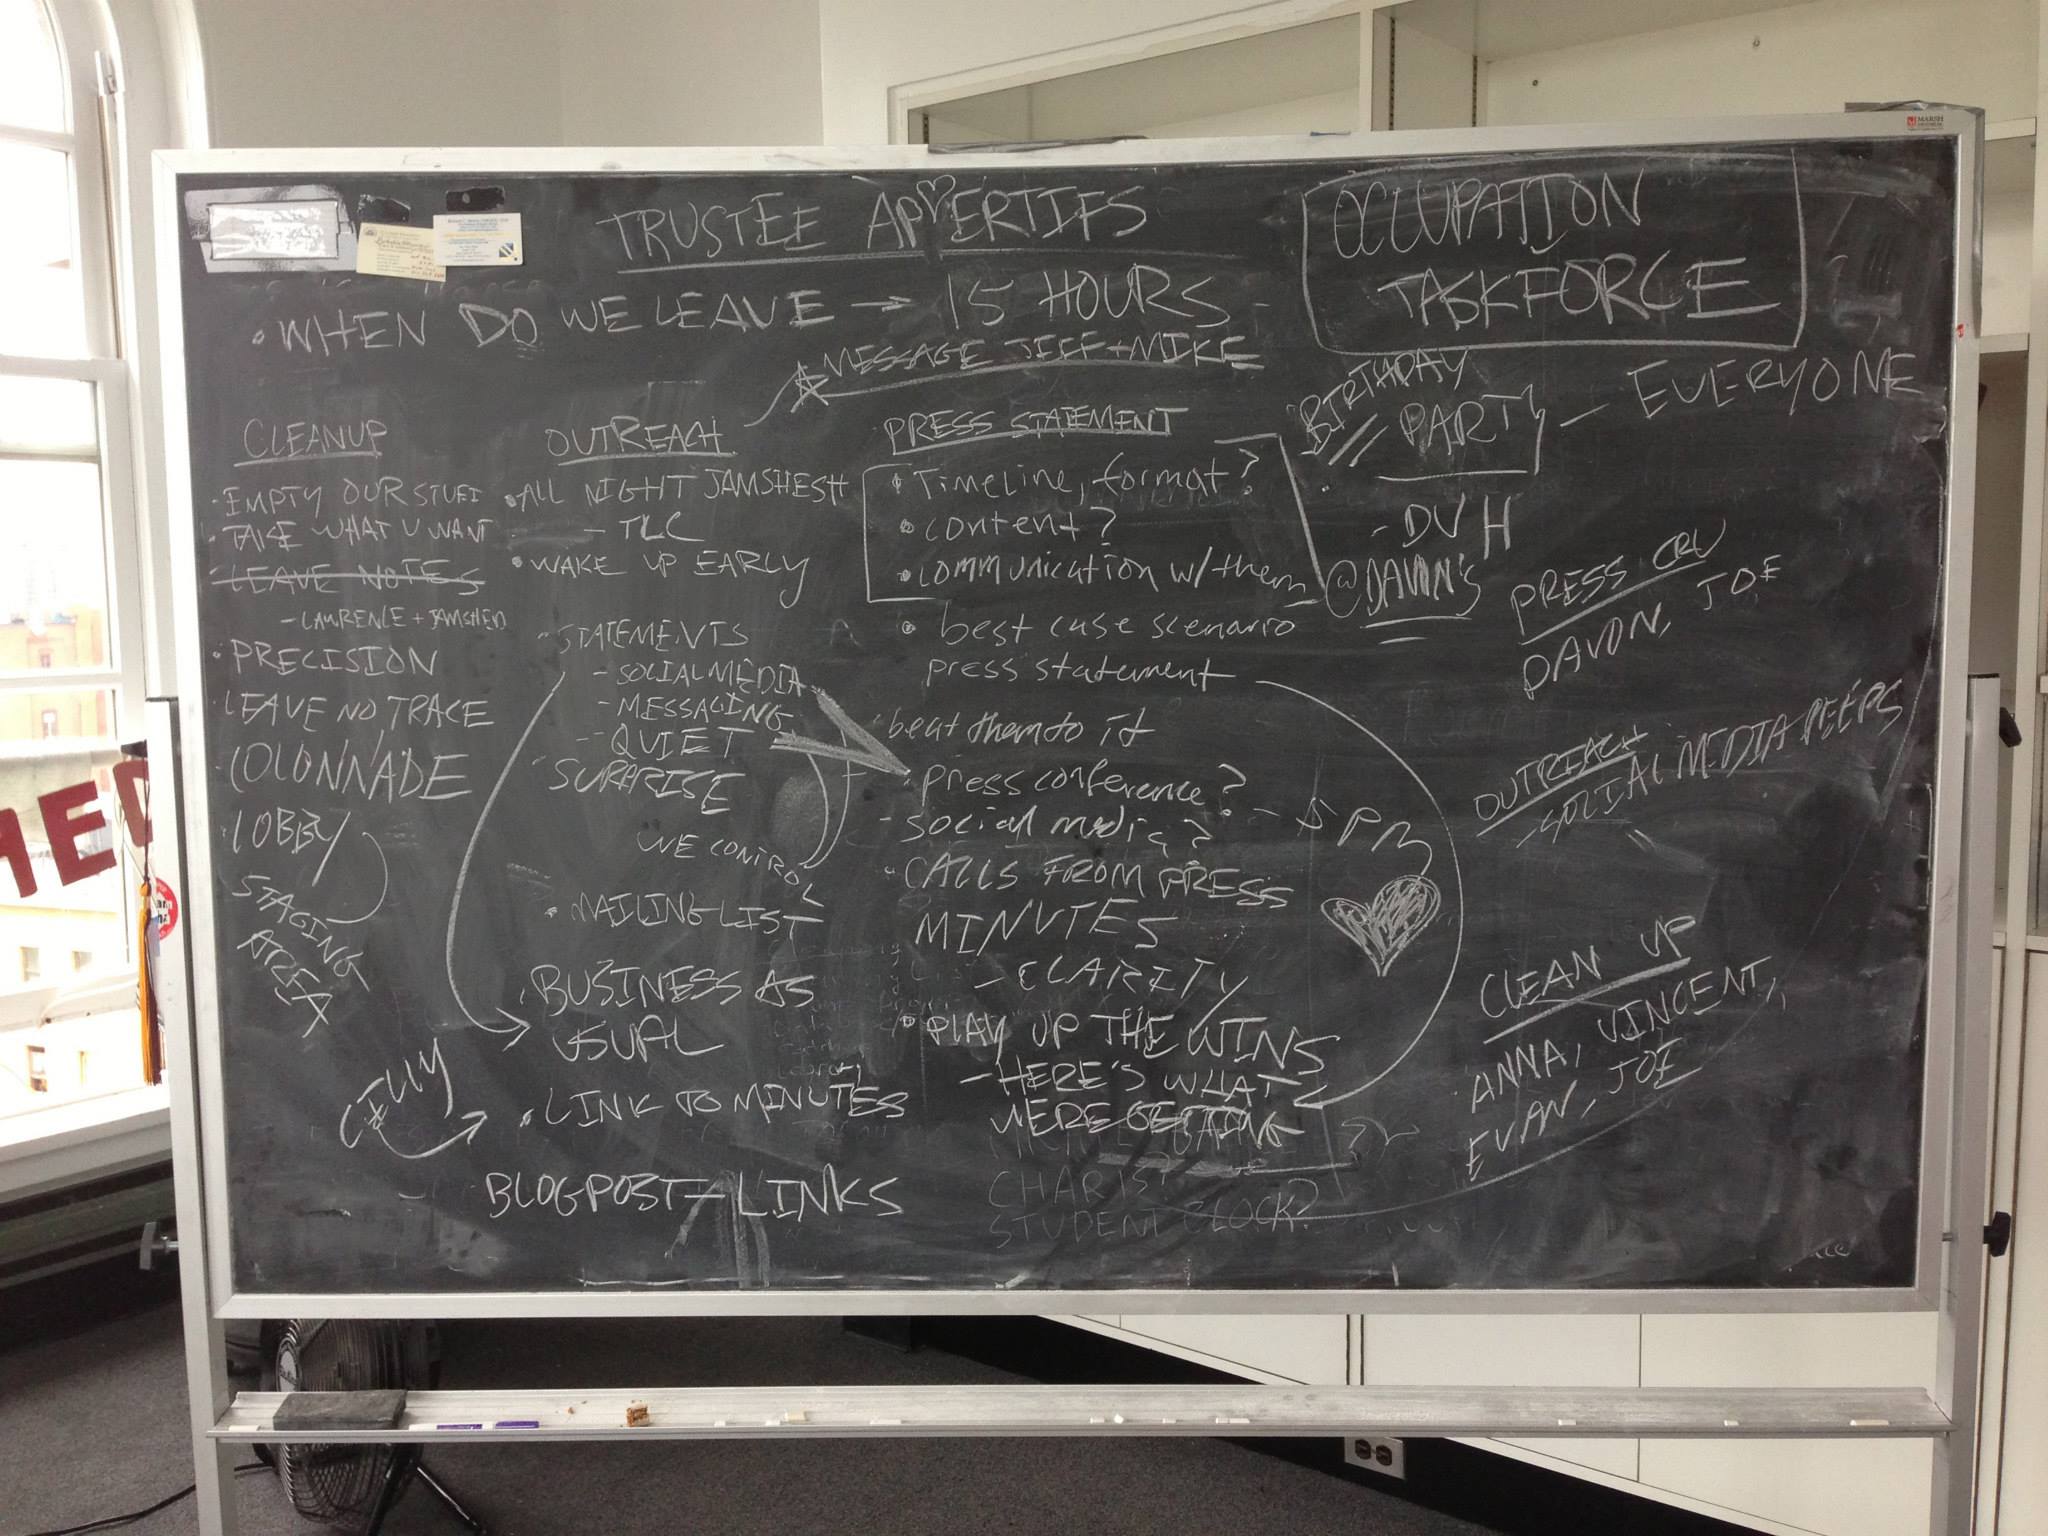 TRUSTEE APERTIFS
OCCUPATION
TASKFORCE
• WHEN DO WE LEAVE → 15 HOURS
MESSAGE JEFF + MIKE
BIRTHDAY
PARTY — EVERYONE
- DVH
@DAVON'S
CLEANUP
• EMPTY OUR STUFF
• TAKE WHAT U WANT
• LEAVE NOTES
- LAWRENCE + JAMSHED
• PRECISION
• LEAVE NO TRACE
• COLONNADE
• LOBBY
STAGING
AREA
OUTREACH
• ALL NIGHT JAMSHESH
- TLC
• WAKE UP EARLY
• STATEMENTS
- SOCIAL MEDIA
- MESSAGING
- QUIET
SURPRISE
WE CONTROL
• MAILING LIST
• BUSINESS AS
USUAL
• LINK TO MINUTES
BLOGPOST — LINKS
PRESS STATEMENT
• Timeline, format?
• content?
• communication w/ them
• best case scenario
press statement
• beat them to it
• press conference?
- social media? - 5PM
• CALLS FROM PRESS
MINUTES
- CLARITY
• PLAY UP THE WINS
- HERE'S WHAT
WERE GETTING
STUDENT BLOCK?
PRESS CRU
DAVON, JOE
OUTREACH
- SOCIAL MEDIA PEEPS
CLEAN UP
ANNA, VINCENT,
EVAN, JOE
MARSH